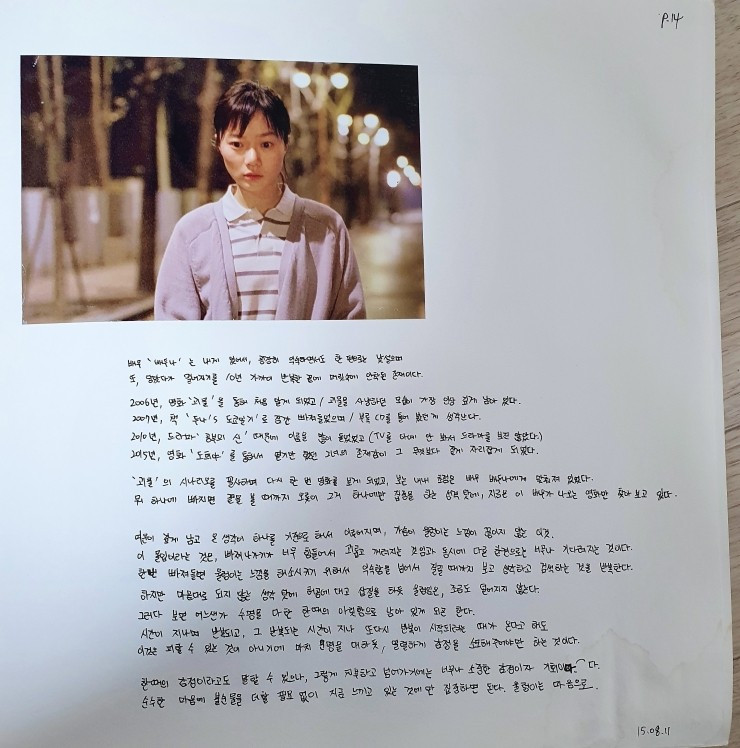 P.14
배우 '배두나'는 내게 있어서, 굉장히 익숙하면서도 한 편으로는 낯설으며
또, 멀어지기를 10년 가까이 반복한 끝에 머릿속에 안착된 존재이다.
2006년, 영화 '괴물'을 통해 처음 알게 되었고 / 괴물을 사냥하던 모습이 가장 인상 깊게 남아 있다.
2007년, 책 '두나's 도쿄놀이'로 잠깐 빠져들었으며 / 부록 CD를 틀어 봤던게 생각난다.
2010년, 드라마 '공부의 신' 때문에 이름을 많이 들었었고 (TV를 아예 안 봐서 드라마를 보진 않았다.)
2015년, 영화 '도희야'를 통해서 옅기만 했던 그녀의 존재감이 그 무엇보다 짙게 자리잡게 되었다.
'괴물'의 시나리오를 필사하며 다시 한 번 영화를 보게 되었고, 보는 내내 초점은 배우 배두나에게 맞춰져 있었다.
뭐 하나에 빠지면 끝을 볼 때까지 오롯이 그거 하나에만 집중을 하는 성격 탓에, 지금은 이 배우가 나오는 영화만 찾아 보고 있다.
여운이 짙게 남고 온 생각이 하나를 기준으로 해서 이루어지며, 가슴이 울렁이는 느낌이 끊이지 않는 이것.
이 몰입이라는 것은, 빠져나가기가 너무 힘들어서 괴롭고 꺼려지는 것임과 동시에 다른 한편으로는 너무나 기다려지는 것이다.
한번 빠져들면 울렁이는 느낌을 해소시키기 위해서 익숙함을 넘어서 질릴 때까지 보고 생각하고 검색하는 것을 반복한다.
하지만 마음대로 되지 않는 생각 탓에 허공에 대고 삽질을 하듯 울렁임은, 조금도 덜어지지 않는다.
그러다 보면 어느샌가 수명을 다한 한때의 아릿함으로 남아 있게 되곤 한다.
시간이 지나며 반복되고, 그 반복되는 시간이 지나 또다시 반복이 시작되려는 때가 온다고 해도
이것은 피할 수 있는 것이 아니기에 마치 운명을 대하듯, 덤덤하게 감정을 소모해주어야만 하는 것이다.
한때의 감정이라고도 말할 수 있으나, 그렇게 치부하고 넘어가기에는 너무나 소중한 감정이자 기회이다.
순수한 마음에 불순물을 더할 필요 없이 지금 느끼고 있는 것에만 집중하면 된다. 울렁이는 마음으로.
15.08.11